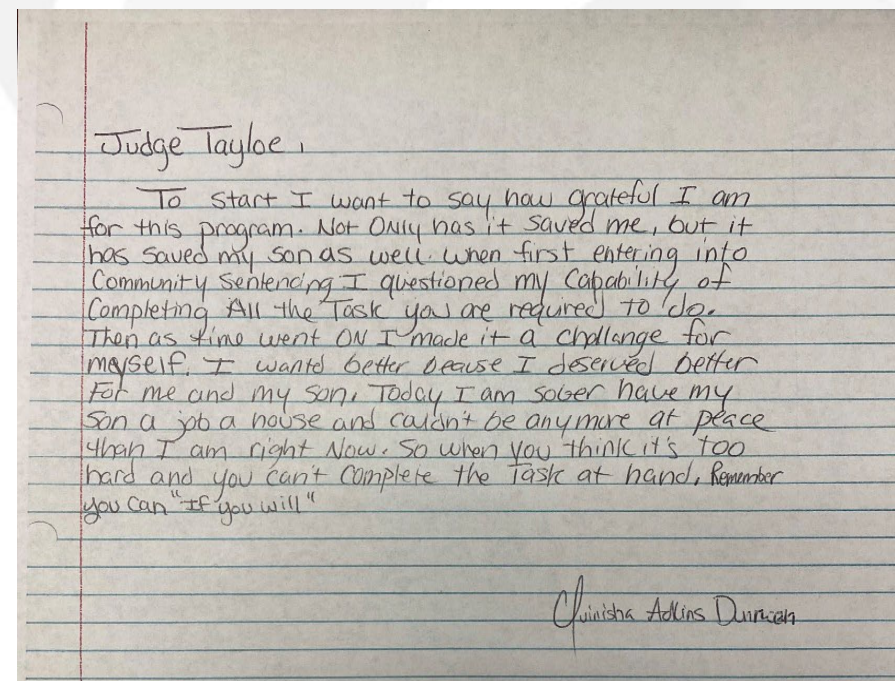 Judge Tayloe,
To start I want to say how grateful I am
for this program. Not ONly has it saved me, but it
has saved my son as well. When first entering into
Community Sentencing I questioned my Capability of
Completing All the Task you are required to do.
Then as time went ON I made it a challange for
meyself. I wantd better beause I deserved better
For me and my son. Today I am sober have my
Son a job a house and couldn't be anymore at peace
than I am right Now. So when you think it's too
hard and you can't Complete the Task at hand, Remember
you can "If you will"
Quinisha Adkins Duncan